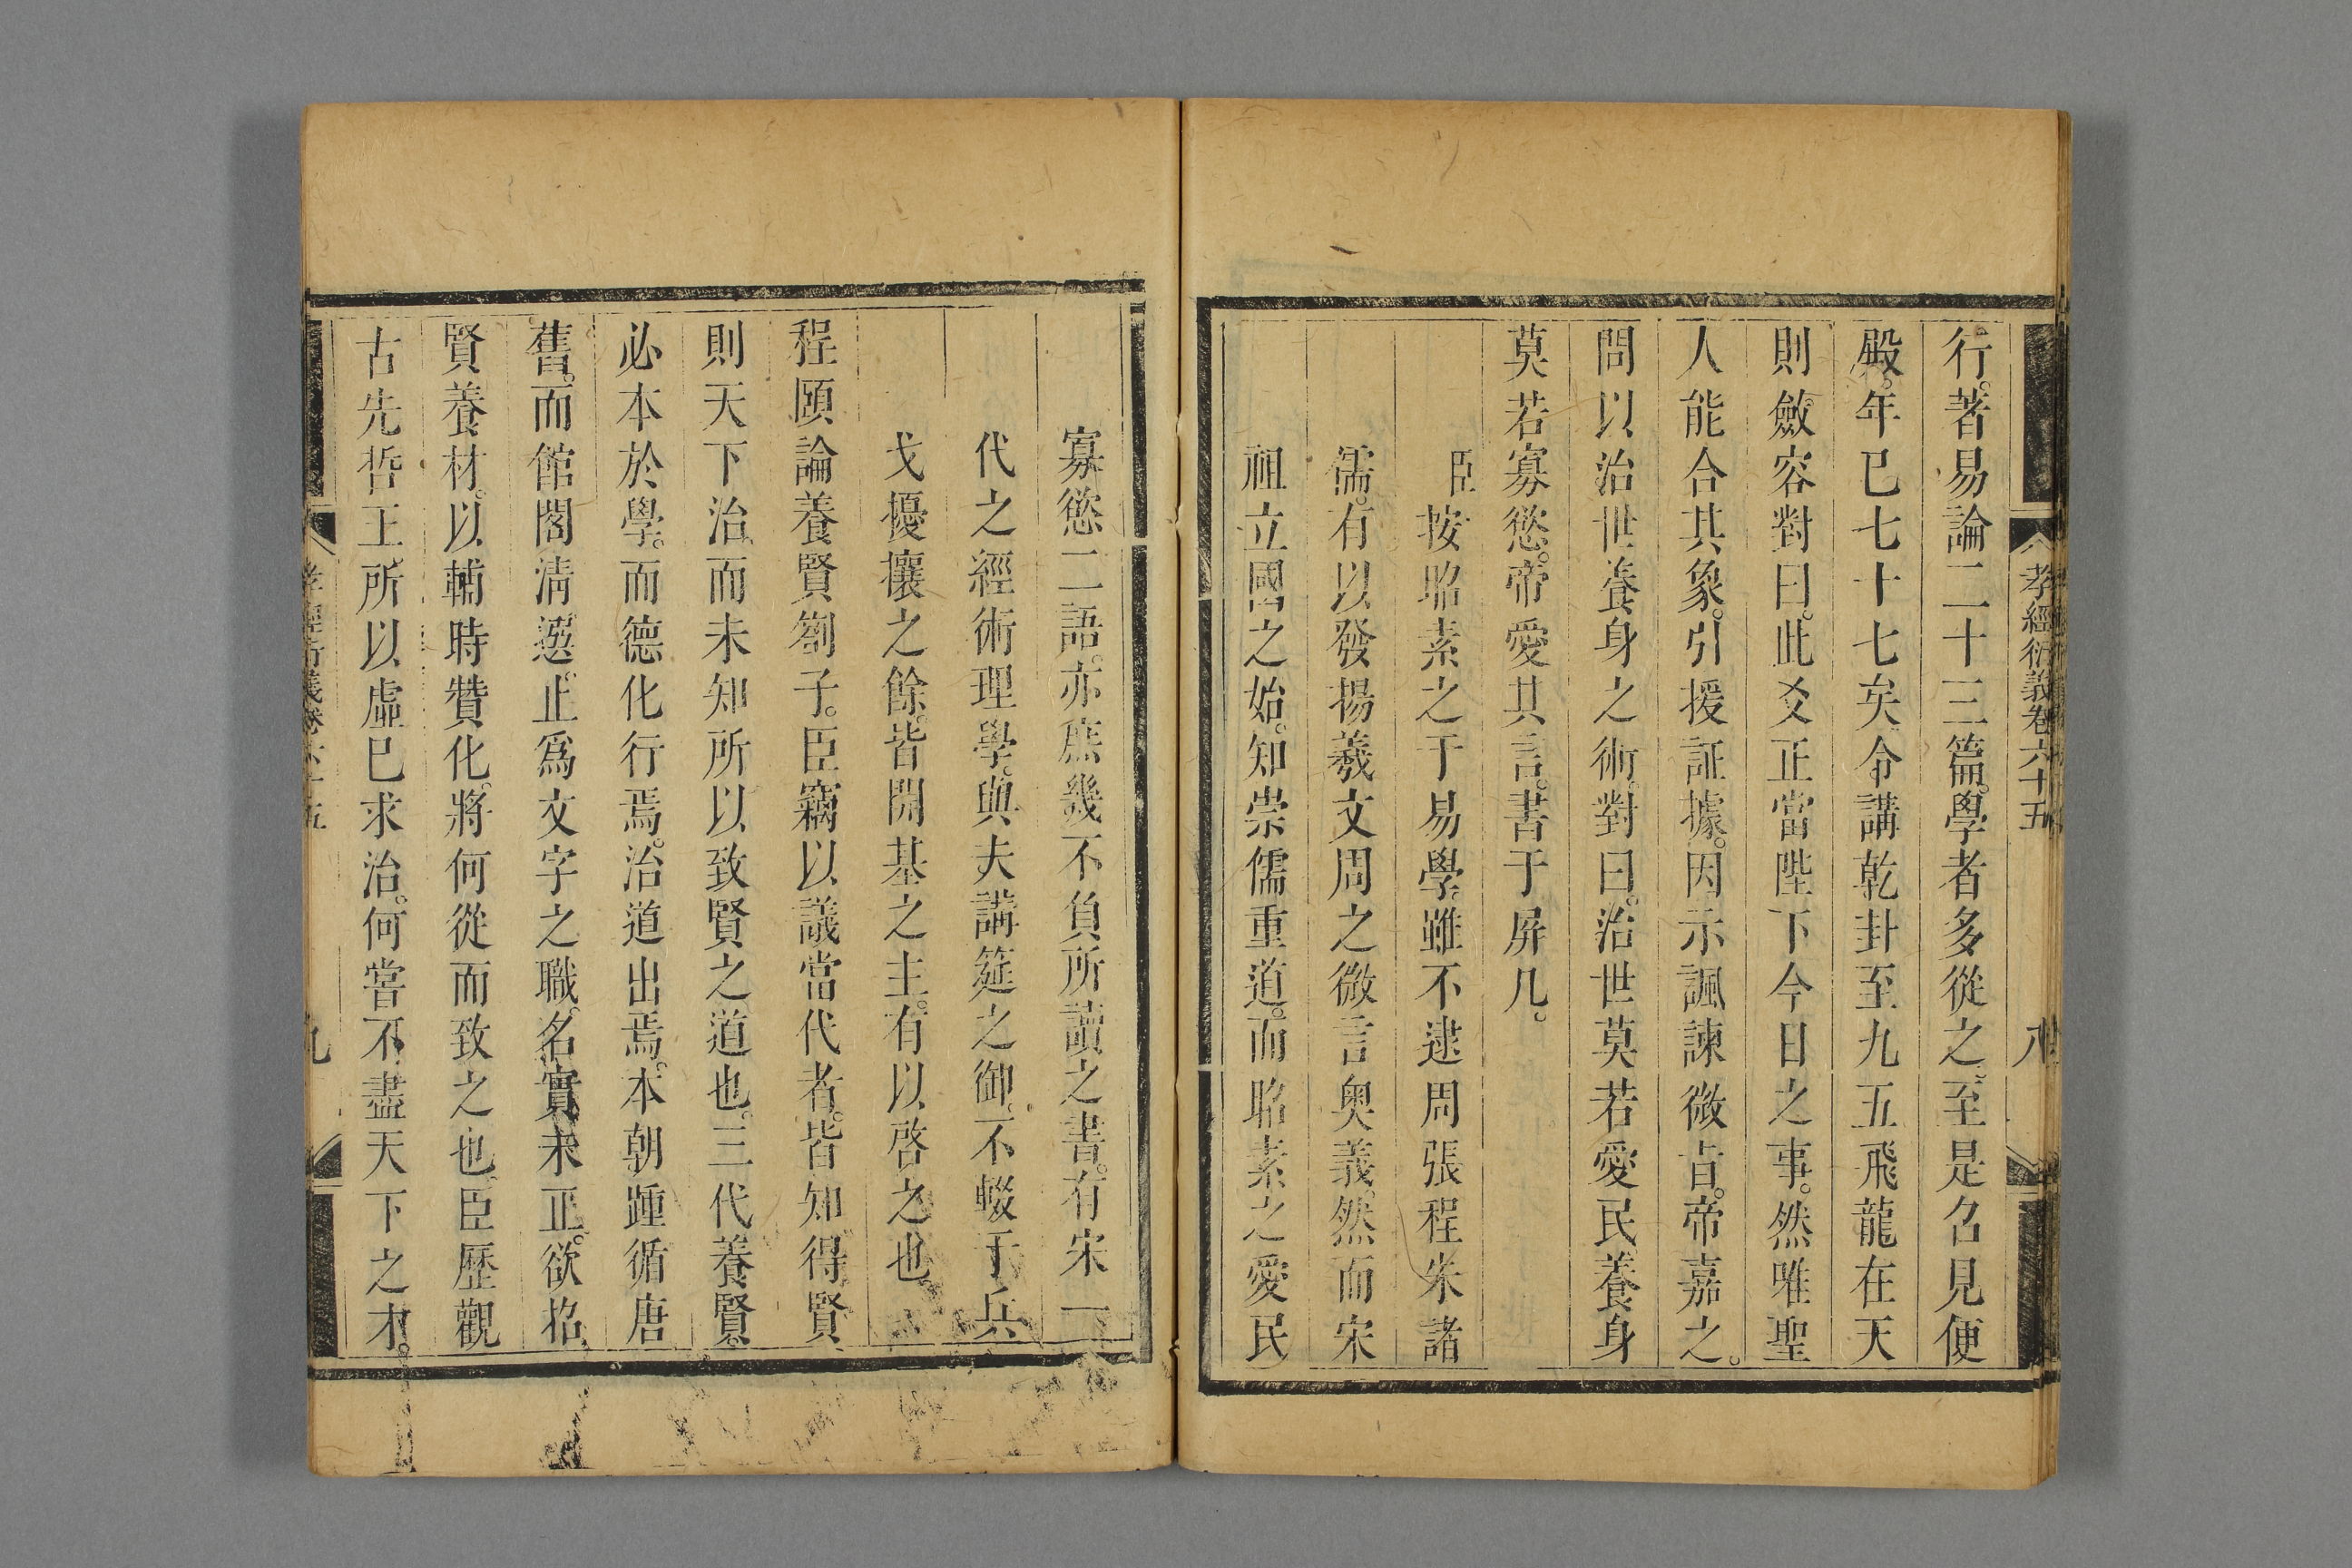 孝經衍義卷六十五
八
行。著易論二十三篇。學者多從之。至是召見便
殿。年已七十七矣。令講乾卦至九五飛龍在天
則斂容對曰。此爻正當陛下今日之事。然唯聖
人能合其象。引援証據。因示諷諫微旨。帝嘉之。
問以治世養身之術。對曰。治世莫若愛民養身
莫若寡慾。帝愛其言。書于屏几。
臣按昭素之于易學。雖不逮周張程朱諸
儒。有以發揚羲文周之微言奥義。然而宋
祖立國之始。知崇儒重道。而昭素之愛民
寡慾二語。亦庶幾不負所讀之書。有宋一
代之經術理學。與夫講筵之御。不輟于兵
戈擾攘之餘。皆開基之主。有以啓之也
程頤論養賢劄子。臣竊以議當代者。皆知得賢
則天下治。而未知所以致賢之道也。三代養賢
必本於學。而德化行焉。治道出焉。本朝踵循唐
舊。而館閣清選。止爲文字之職。名實未正。欲招
賢養材。以輔時贊化。將何從而致之也。臣歷觀
古先哲王所以虛已求治。何嘗不盡天下之才。
孝經衍義卷六十五
九